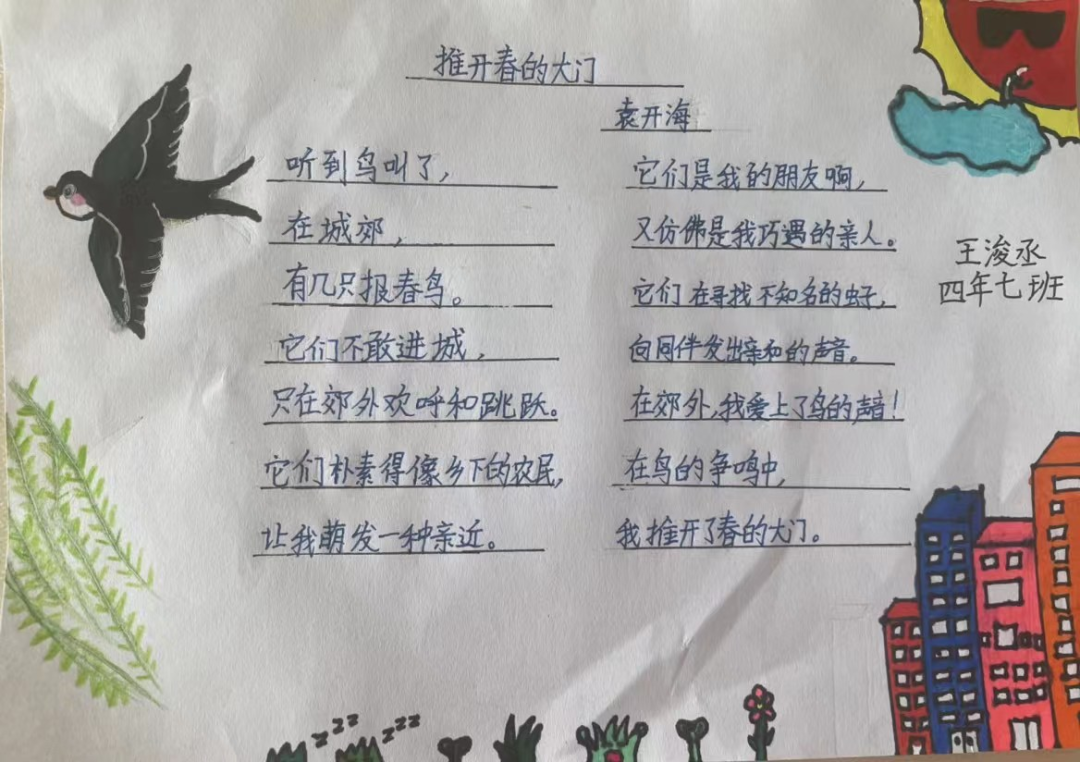 推开春的大门
袁开海
听到鸟叫了，
在城郊，
有几只报春鸟。
它们不敢进城，
只在郊外欢呼和跳跃。
它们朴素得像乡下的农民，
让我萌发一种亲近。
它们是我的朋友啊，
又仿佛是我巧遇的亲人。
它们在寻找不知名的虫子，
向同伴发出亲和的声音。
在郊外，我爱上了鸟的声音！
在鸟的争鸣中，
我推开了春的大门。
王浚丞
四年七班
zzz
zzz